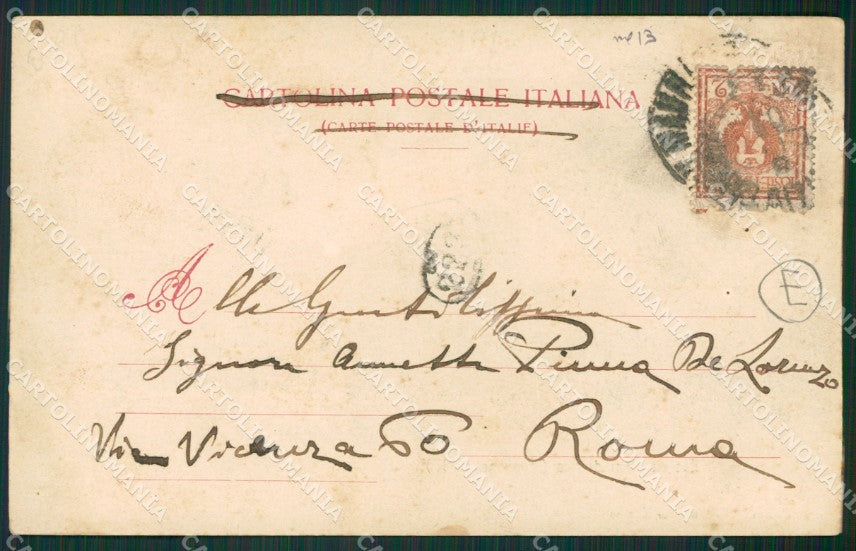 me 13
CARTOLINA POSTALE ITALIANA
(CARTE POSTALE D'ITALIE)
E
Alla Gentilissima
Signora Annetta Pinna De Lorenzo
Via Vicenza 60 Roma
CARTOLINOMANIA